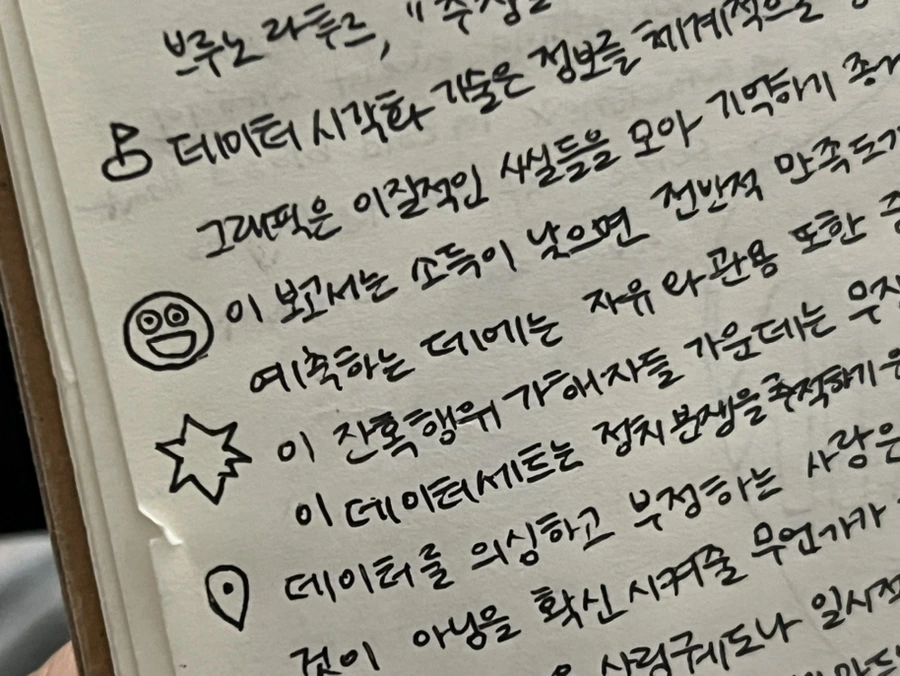 브루노 라투르, "추상
데이터 시각화 기술은 정보를 체계적으로
그래픽은 이질적인 사실들을 모아 기억하기
이 보고서는 소득이 낮으면 전반적 만족도가
예측하는 데에는 자유와 관용 또한
이 잔혹행위 가해자들 가운데는
이 데이터세트는 정치 분쟁을 추적하기
데이터를 의심하고 부정하는 사랑은
것이 아님을 확신시켜줄 무언가가
사령궤도나 일시적